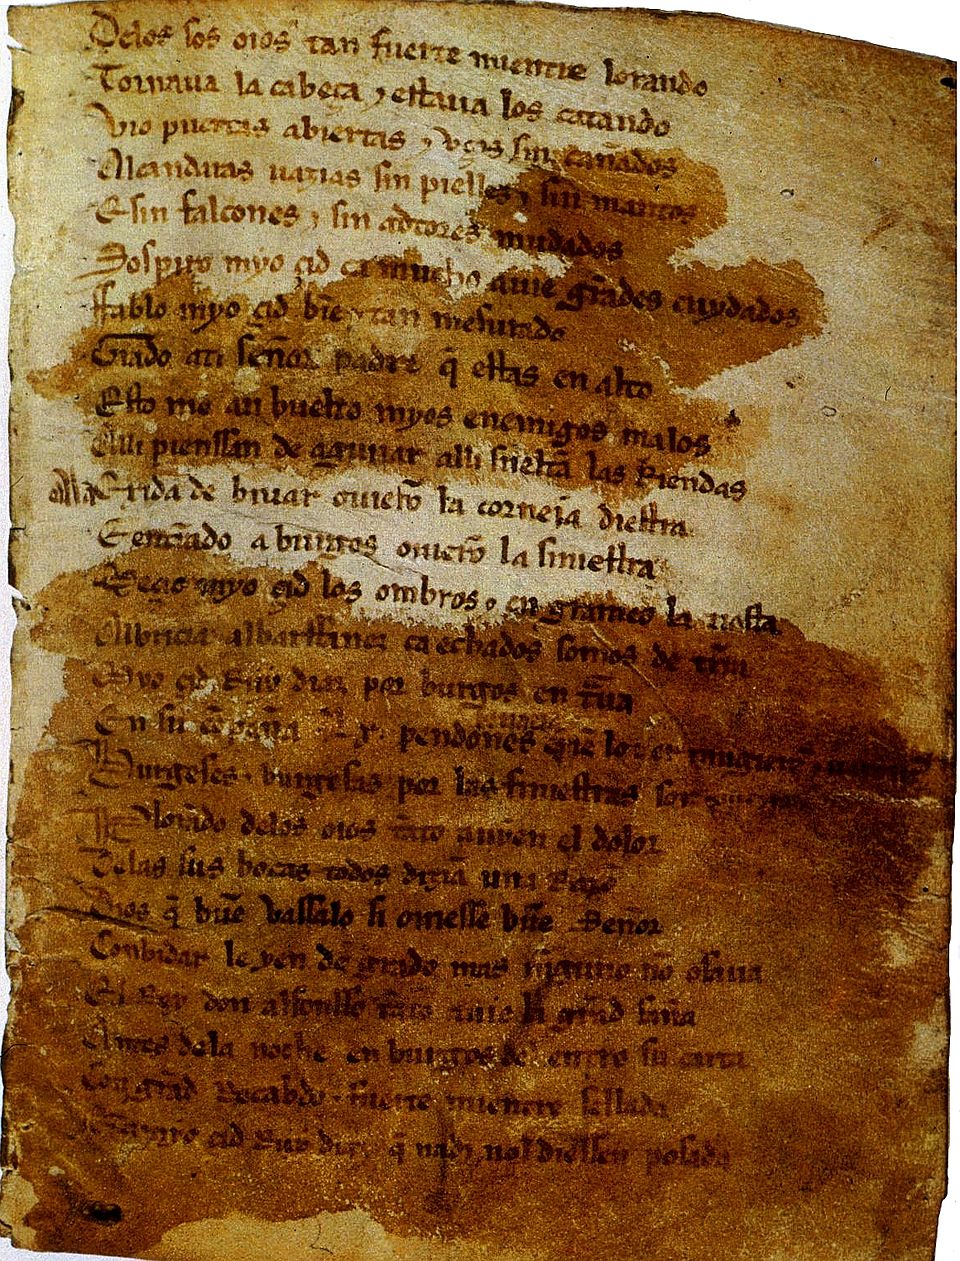 Delos sos oios tan fuerte mientre lorando
Tornaua la cabeça ⁊ estaua los catando
Vio puertas abiertas ⁊ vços sin cañados
Alcandaras uazias sin pielles ⁊ sin mantos
E sin falcones ⁊ sin adtores mudados
Sospiro myo çid ca mucho auie grãdes cuydados
ffablo myo çid biẽ ⁊ tan mesurado
Grado ati señor padre q̃ estas en alto
Esto me an buelto myos enemigos malos
Alli pienssan de aguiiar alli sueltã las Riendas
Ala exida de biuar ouierõ la corneia diestra
E entrãdo a burgos ouierõ la siniestra
Meçio myo çid los ombros ⁊ en grameo la tiesta
Albricia albarffanez ca echados somos de tr̃ra
Myo çid Ruy diaz por burgos en traua
En su cõpaña Lx pendones
Burgeses ⁊ burgesas por las finiestras son
Plorãdo delos oios tãto auyen el dolor
Delas sus bocas todos dizian una Razõ
Dios q̃ buẽ vassalo si ouiesse buẽ Señor
Conbidar le yen de grado mas ninguno nõ osaua
El Rey don alfonsso tãto auie la grãd saña
Antes dela noche en burgos del entro su carta
Con grãd Recabdo ⁊ fuerte mientre sellada
Que a myo çid Ruy diaz q̃ nadi nol diessen posada